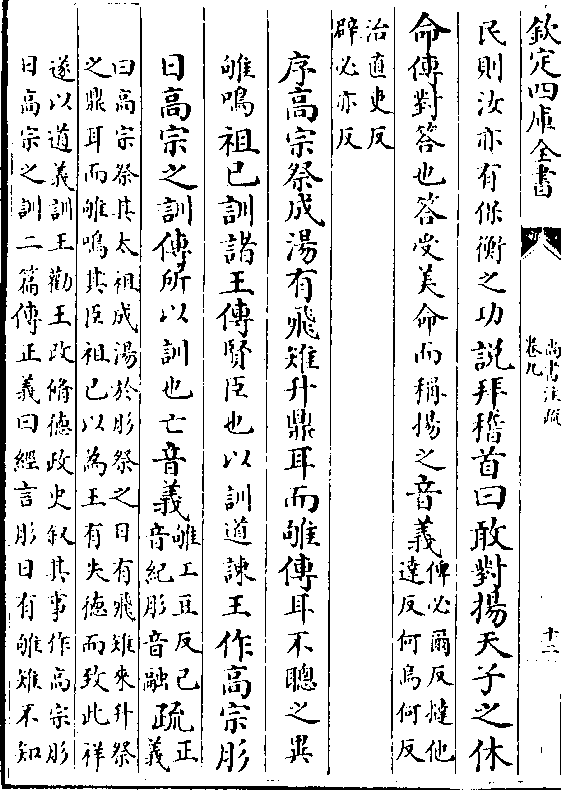 欽定四庫全書
尚書注疏
卷九
十二
民則汝亦有保衡之功說拜稽首曰敢對揚天子之休
命傳對答也答受美命而稱揚之音義俾必爾反撻他
達反何烏何反
治直吏反
辟必亦反
序高宗祭成湯有飛雉升鼎耳而雊傳耳不聰之異
雊鳴祖己訓諸王傳賢臣也以訓道諫王作高宗肜
日高宗之訓傳所以訓也亡音義雊工豆反己
音紀肜音融疏正
義
曰高宗祭其太祖成湯於肜祭之日有飛雉來升祭
之鼎耳而雊鳴其臣祖己以為王有失德而致此祥
遂以道義訓王勸王改脩德政史叙其事作高宗肜
日高宗之訓二篇傳正義曰經言肜日有雊雉不知